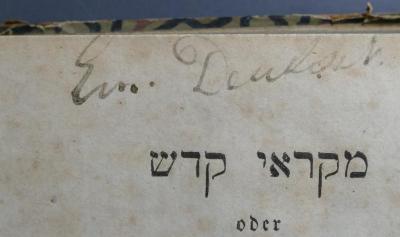 Em. Deutsch.
מקראי קדש
oder